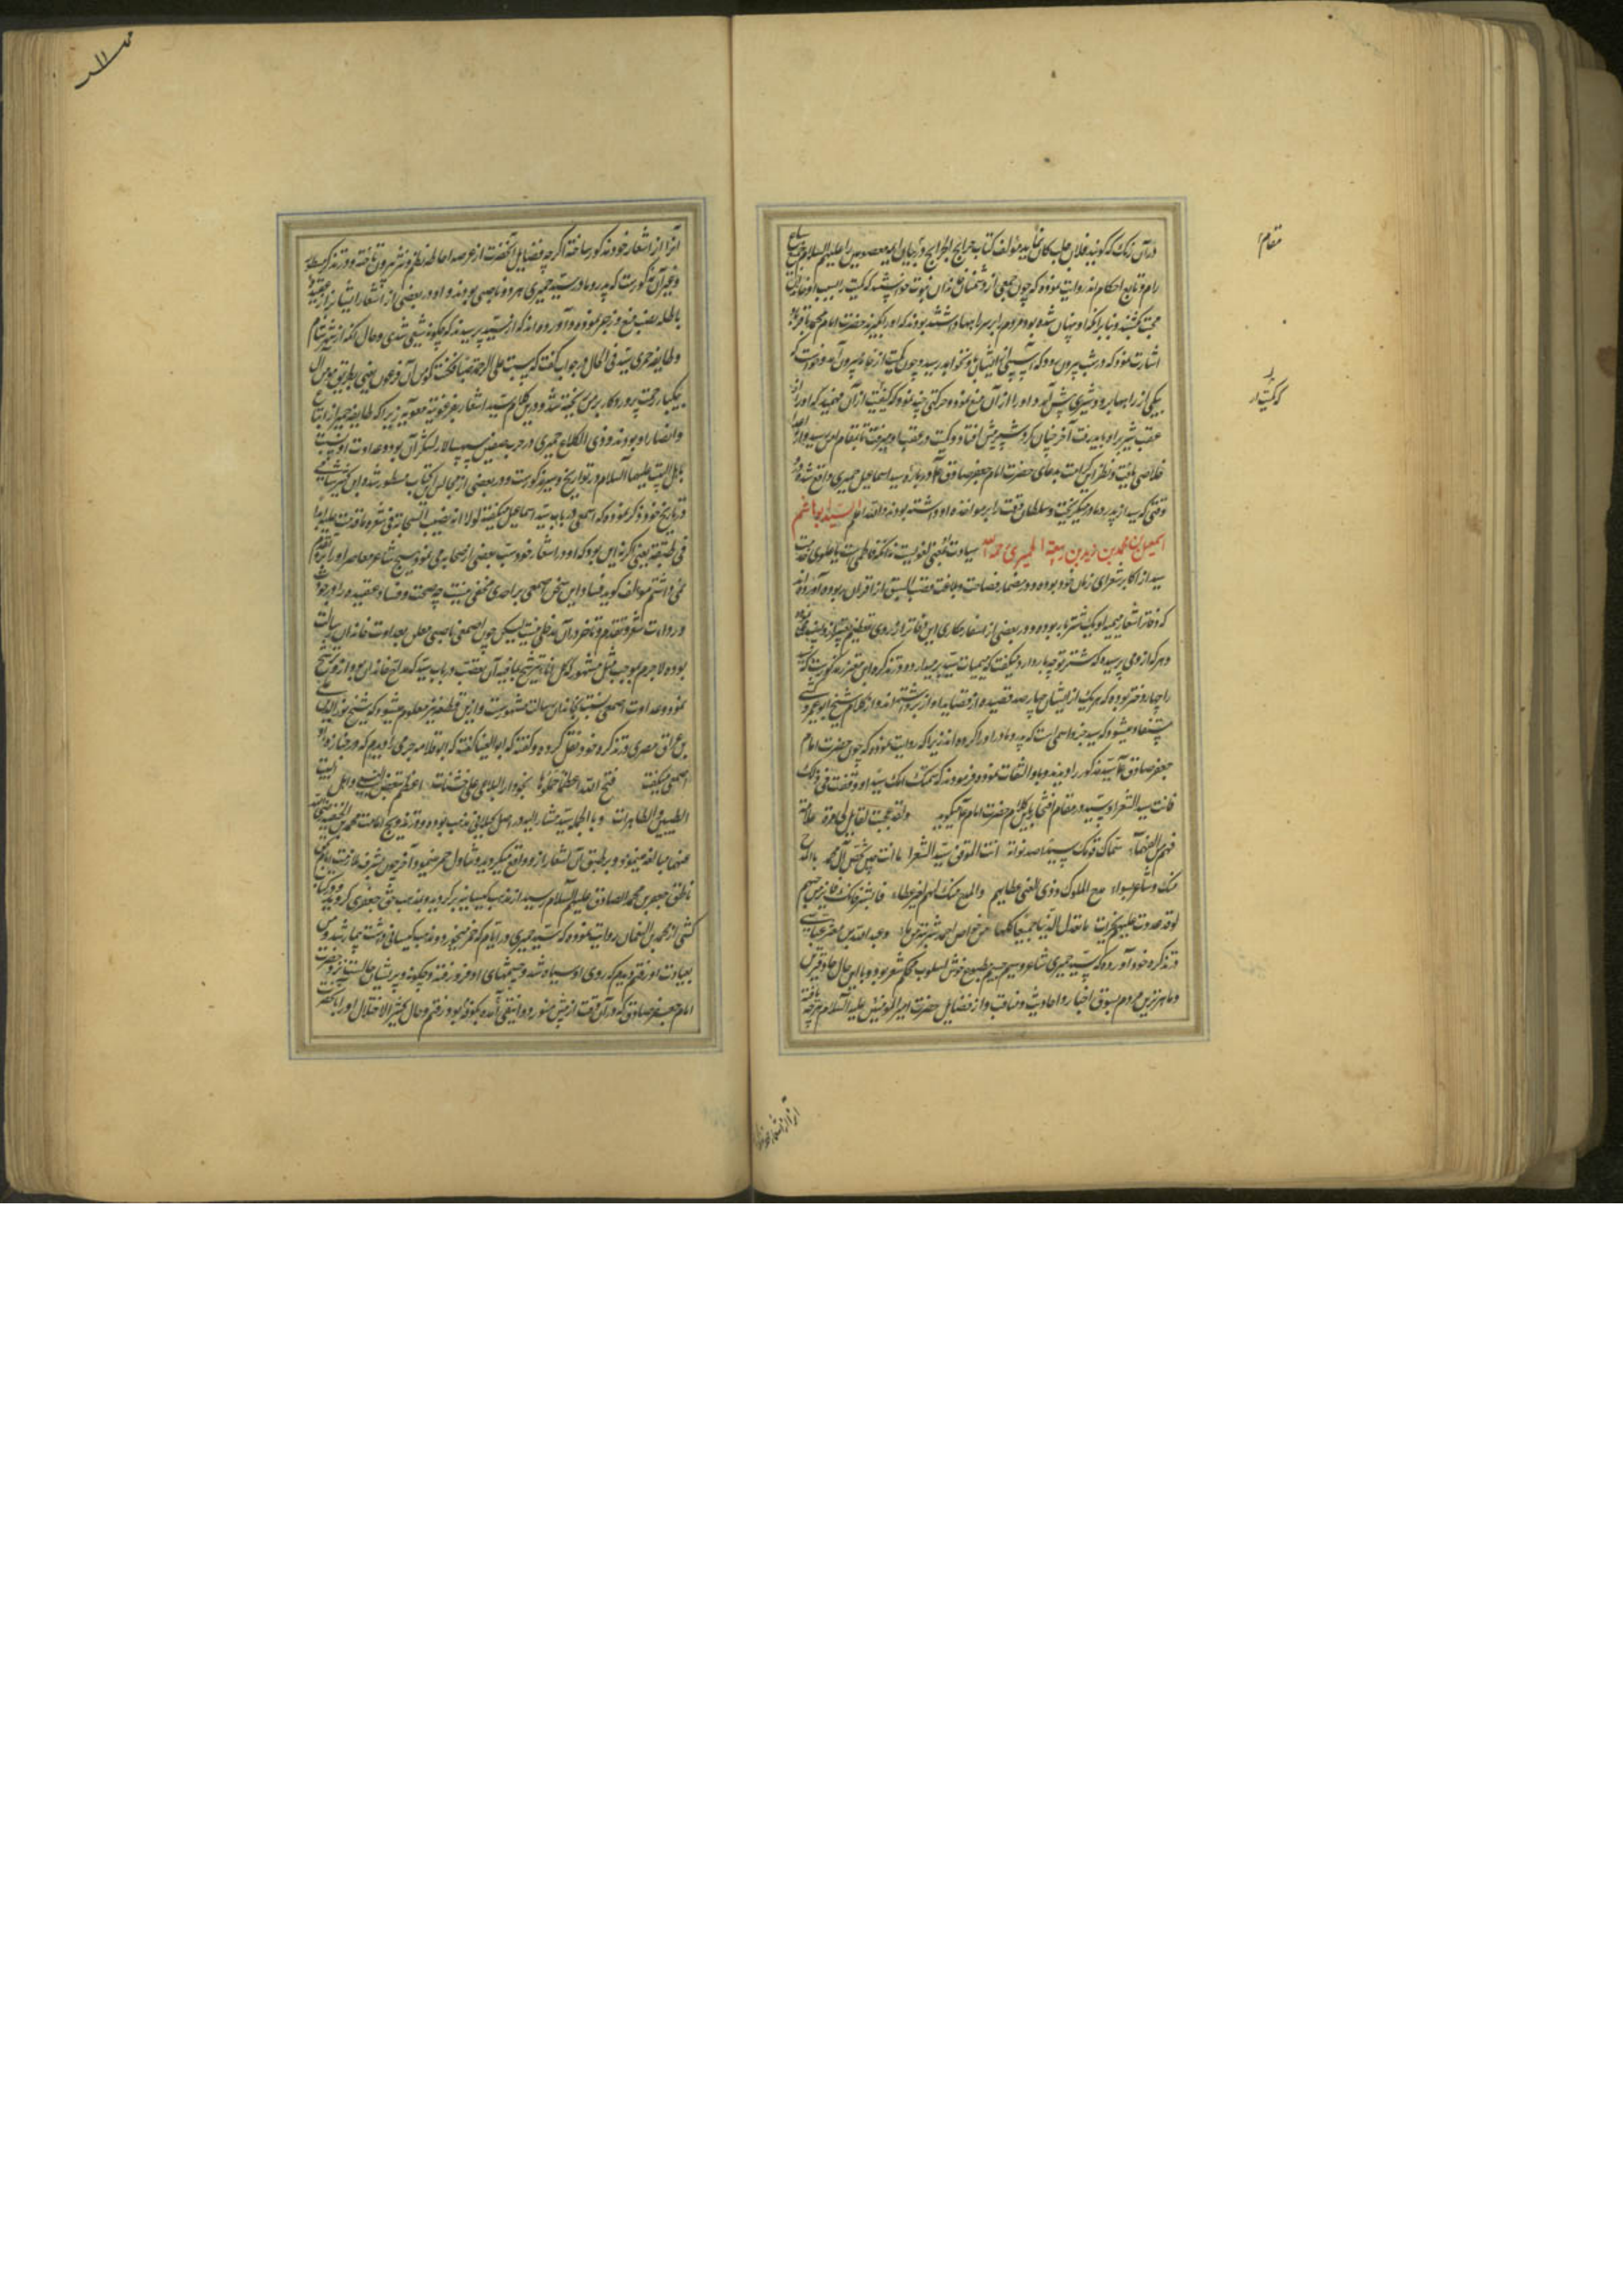 در آن زمان که گویند فلان جلب کان نماید مؤلف کتاب خرایج الجرایح در بیان ایمه معصومین را علیهم السلام سباع
رام و تابع احکام اند روایت نموده که چون جمعی از دشمنان خاندان نبوت خواستند که کمیت را بسبب او خاندان
محبت بکشند و بنابرانکه او پنهان شده بود مردم را بر سر راهها داشته بودند که او را بگیرند حضرت امام محمد باقر
اشارت نمود که در شب بیرون رود که آسیبی از ایشان باو نخواهد رسید و چون کمیت از خانه بیرون آمد و خواست که
یکی از راهها برود شیری پیش آمد و او را از آن منع نمود و حرکتی چند نمود که کمیت از آن فهمید که او را از
عقب شیر براه باید رفت آخر چنان کرد و شیر پیش افتاد و کمیت در عقب او میرفت تا بمقام امن رسید و از
خلاصی یافت و نظیر این کرامت بدعای حضرت امام جعفر صادق در باره سید اسماعیل حمیری واقع شده در
وقتی که سید از پدر و مادر میگریخت و سلطان وقت را بر مواخذه او داشته بودند والله اعلم السید ابو هاشم
اسمعیل بن محمد بن زید بن ربیعة الحمیری رحمه الله سیادت بمعنی لغویست نه آنکه فاطمی است یا علوی
سید از اکابر شعرای زمان خود بوده و در مضمار فصاحت و بلاغت قصب السبق از اقران ربوده آورده اند
که دفاتر اشعار حمیری او یک شتر بار بوده و در بعضی از اسفار مکاری این دفاتر از روی تعظیم
و هر که از وی پرسیدی که شتر تو چه بار دارد میگفت که میمیات سید بر میدارد و در تذکره ابن معتز مذکورست که سید
را چهار دختر بوده که هر یک از ایشان چهار صد قصیده از قصاید او از بر داشته اند و از کلام شیخ ابو عمرو کشی
مستفاد میشود که سید جزو اسمی است که پدر و مادر او را کرده اند زیرا که روایت نموده که چون حضرت امام
جعفر صادق سید مذکور را دیدند و باو التفات نموده فرمودند که سمتک امک سیدا و وفقت فی ذلک
فانت سید الشعرا و سید در مقام افتخار باین کلام حضرت امام میگوید ولقد عجبت لقایل لی مرة علامة
فهم من الفهماء سماک قومک سیدا صدقوا به انت الموفق سید الشعراء ما انت حین تخص آل محمد بالمدح
منک و شاعر بسواء مدح الملوک ذوی الغنی لعطائهم والمدح منک لهم لغیر عطاء فابشر فانک فایز من حبهم
لو قد غدوت علیهم بجزاء ما تعدل الدنیا جمیعا کلها من حوض احمد شربة من ماء و عبدالله بن معتز عباسی
در تذکره خود آورده که سید حمیری شاعر وسیم جسیم مطبوع خوش اسلوب محکم شعر بود و با این حال حاذقترین
و ماهرترین مردم بسوق اخبار و احادیث و مناقب و از فضایل حضرت امیر المؤمنین علیه السلام هر چه یافته
مقام
که کمیت را
آنرا از اشعار خود
آنرا از اشعار خود مذکور ساخته اگر چه فضایل آنحضرت از عرصه احاطه نظم و نثر بیرون تاخته و در تذکره
و غیر آن مذکورست که پدر و مادر سید حمیری هر دو ناصبی بودند و او در بعضی از اشعار ایشانرا از عقیده
باطله نصب منع و زجر نموده و آورده اند که از سید پرسیدند که چگونه شیعی شدی و حال آنکه از شهر شام
و طایفه حمیری سید فی الحال در جواب گفت که صبت علی الرحمة صبا فکنت کمؤمن آل فرعون یعنی بطریق مومن آل
یکبار رحمت پروردکار بر من ریخته شد و در این کلام سید اشعار بفرعونیت معویه زیرا که طایفه حمیر از اتباع
و انصار او بودند و ذی الکلاع حمیری در حرب صفین سپهسالار لشکر آن بوده و عداوت او نسبت
باهل البیت علیهم السلام در تواریخ و سیر مذکورست و در بعضی از مجالس این کتاب مسطور شده و ابن کثیر شامی
در تاریخ خود ذکر نموده که اصمعی در باب سید اسماعیل میگفته لولا انه یسب السلف فی شعره ما قدمت علیه احدا
فی طبقته یعنی اگر نه این بود که او در اشعار خود سب بعضی از صحابه می نمود هیچ شاعر معاصر او را برو تقدیم
نمی داشتم مؤلف گوید فساد این سخن اصمعی بر احدی مخفی نیست چه صحت و فساد عقیده را در جودت
و رداءت شعر و تقدم و تاخر در آن مدخلی نیست لیکن چون اصمعی ناصبی معلن بعداوت خاندان رسالت
بوده لاجرم بموجب مثل مشهور که کل اناء یترشح بما فیه آن تعصب در باب سید که مداح خاندان بود از وی ترشح
نموده و عداوت اصمعی نسبت بخاندان رسالت مشهورست و ازین قطعه نیز معلوم میشود که شیخ نورالدین علی
بن عراق مصری در تذکره خود نقل کرده و گفته که ابو العینا گفته که ابو قلابه جرمی را دیدم که در جنازه
اصمعی میگفت فتح الله اعظما حملوها نحو دار البلی علی خشبات اعظم تبغض النبی واهل البیت
الطیبین والطاهرات و بالجمله سید مشارالیه در اصل کیسانی مذهب بوده و در ترویج امامت محمد بن الحنفیه رضی الله
عنهما مبالغه مینمود و بر طبق آن اشعار ازو واقع میگردید و تناول خمر مینمود آخر چون بشرف ملازمت امام بحق
ناطق جعفر بن محمد الصادق علیهم السلام رسید از مذهب کیسانیه برگردید و بمذهب حق جعفری گروید و در کتاب
کشی از محمد بن النعمان روایت نموده که سید حمیری در ایام که خمر میخورد و مذهب کیسانی داشت بیمار شد و من
بعیادت او رفتم دیدم که روی او سیاه شده و چشمهای او فرو رفته و جگر او پریشان حالست نزد حضرت
امام جعفر صادق که در آن وقت از پیش منصور دوانیقی آمده بکوفه بود رفتم و حال کثیر الاختلال او را بآنحضرت